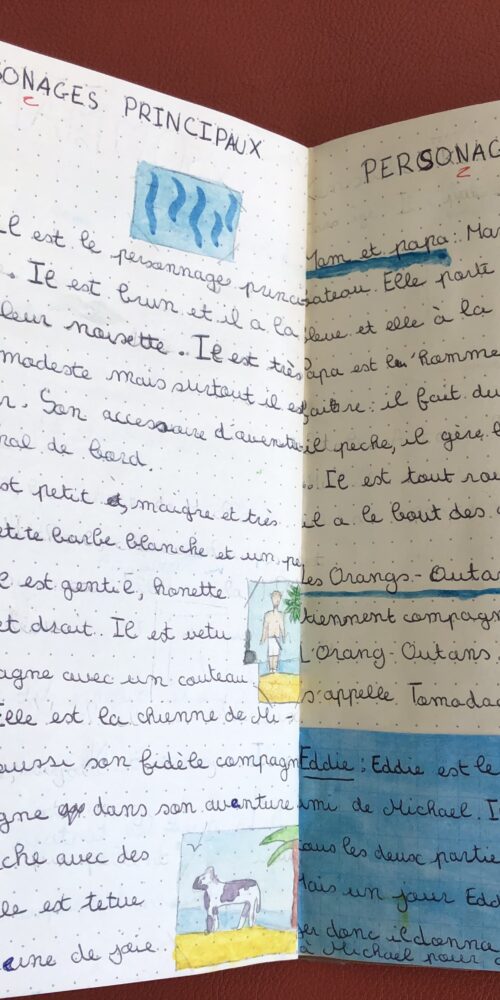 ONAGES PRINCIPAUX
Il est le personnages princi
. Il est brun et il a la
leur noisette. Il est très
modeste mais surtout il es
r. Son accessoire d'aventu
nal de bord.
st petit maigre et très
etite barbe blanche et un pe
l est gentil, honette
et droit. Il est vetu
agne avec un couteau.
Elle est la chienne de Mi-
aussi son fidèle compagn
gne dans son aventure
che avec des
le est tetue
eine de joie.
PERSONAG
Mam et papa : Mam
ateau. Elle porte
leue et elle à la
Papa est l'homme
faitre : il fait du
il peche, il gère l
. Il est tout rou
il a le bout des d
Les Orangs-Outan
tiennent compagn
L'Orang-Outans.
s'appelle Tomoda
Eddie : Eddie est le
ami de Michael. I
ous les deux partie
Mais un jour Edd
er donc il donna
à Michael pour